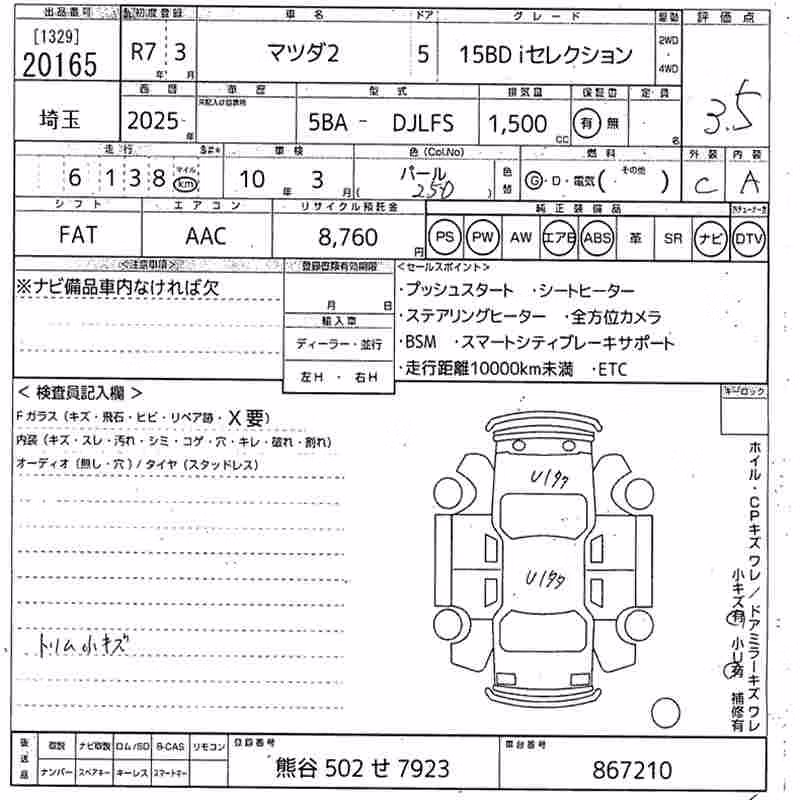 出品番号 初度登録 車名 ドア グレード 駆動 評価点
[1329]
20165 R7 3 マツダ2 5 15BD iセレクション 2WD・4WD
年 月
西暦 車歴 型式 排気量 保証書 定員
埼玉 2025年 5BA - DJLFS 1,500 CC 有 無 名 3.5
走行 車検 色(Col.No) 燃料 外装 内装
6138 マイル km 10年 3月 パール (250) 色替 G・D・電気(その他) C A
シフト エアコン リサイクル預託金 純正装備品
FAT AAC 8,760円 PS PW AW エアB ABS 革 SR ナビ DTV
<注意事項> 登録書類有効期限 <セールスポイント>
※ナビ備品車内なければ欠 ・プッシュスタート ・シートヒーター
月 日 ・ステアリングヒーター ・全方位カメラ
輸入車
ディーラー・並行 ・BSM ・スマートシティブレーキサポート
左H・右H ・走行距離10000km未満 ・ETC
<検査員記入欄> キーロック
Fガラス(キズ・飛石・ヒビ・リペア跡・X要)
内装(キズ・スレ・汚れ・シミ・コゲ・穴・キレ・破れ・割れ)
オーディオ(無し・穴)/タイヤ(スタッドレス)
U1クク
U1クク
トリム小キズ
ホイル・CPキズワレ/ドアミラーキズワレ
小キズ有 小U有 補修有
後送品 取説 ナビ取説 ロム/SD B-CAS リモコン 登録番号 車台番号
ナンバー スペアキー キーレス スマートキー 熊谷 502 せ 7923 867210